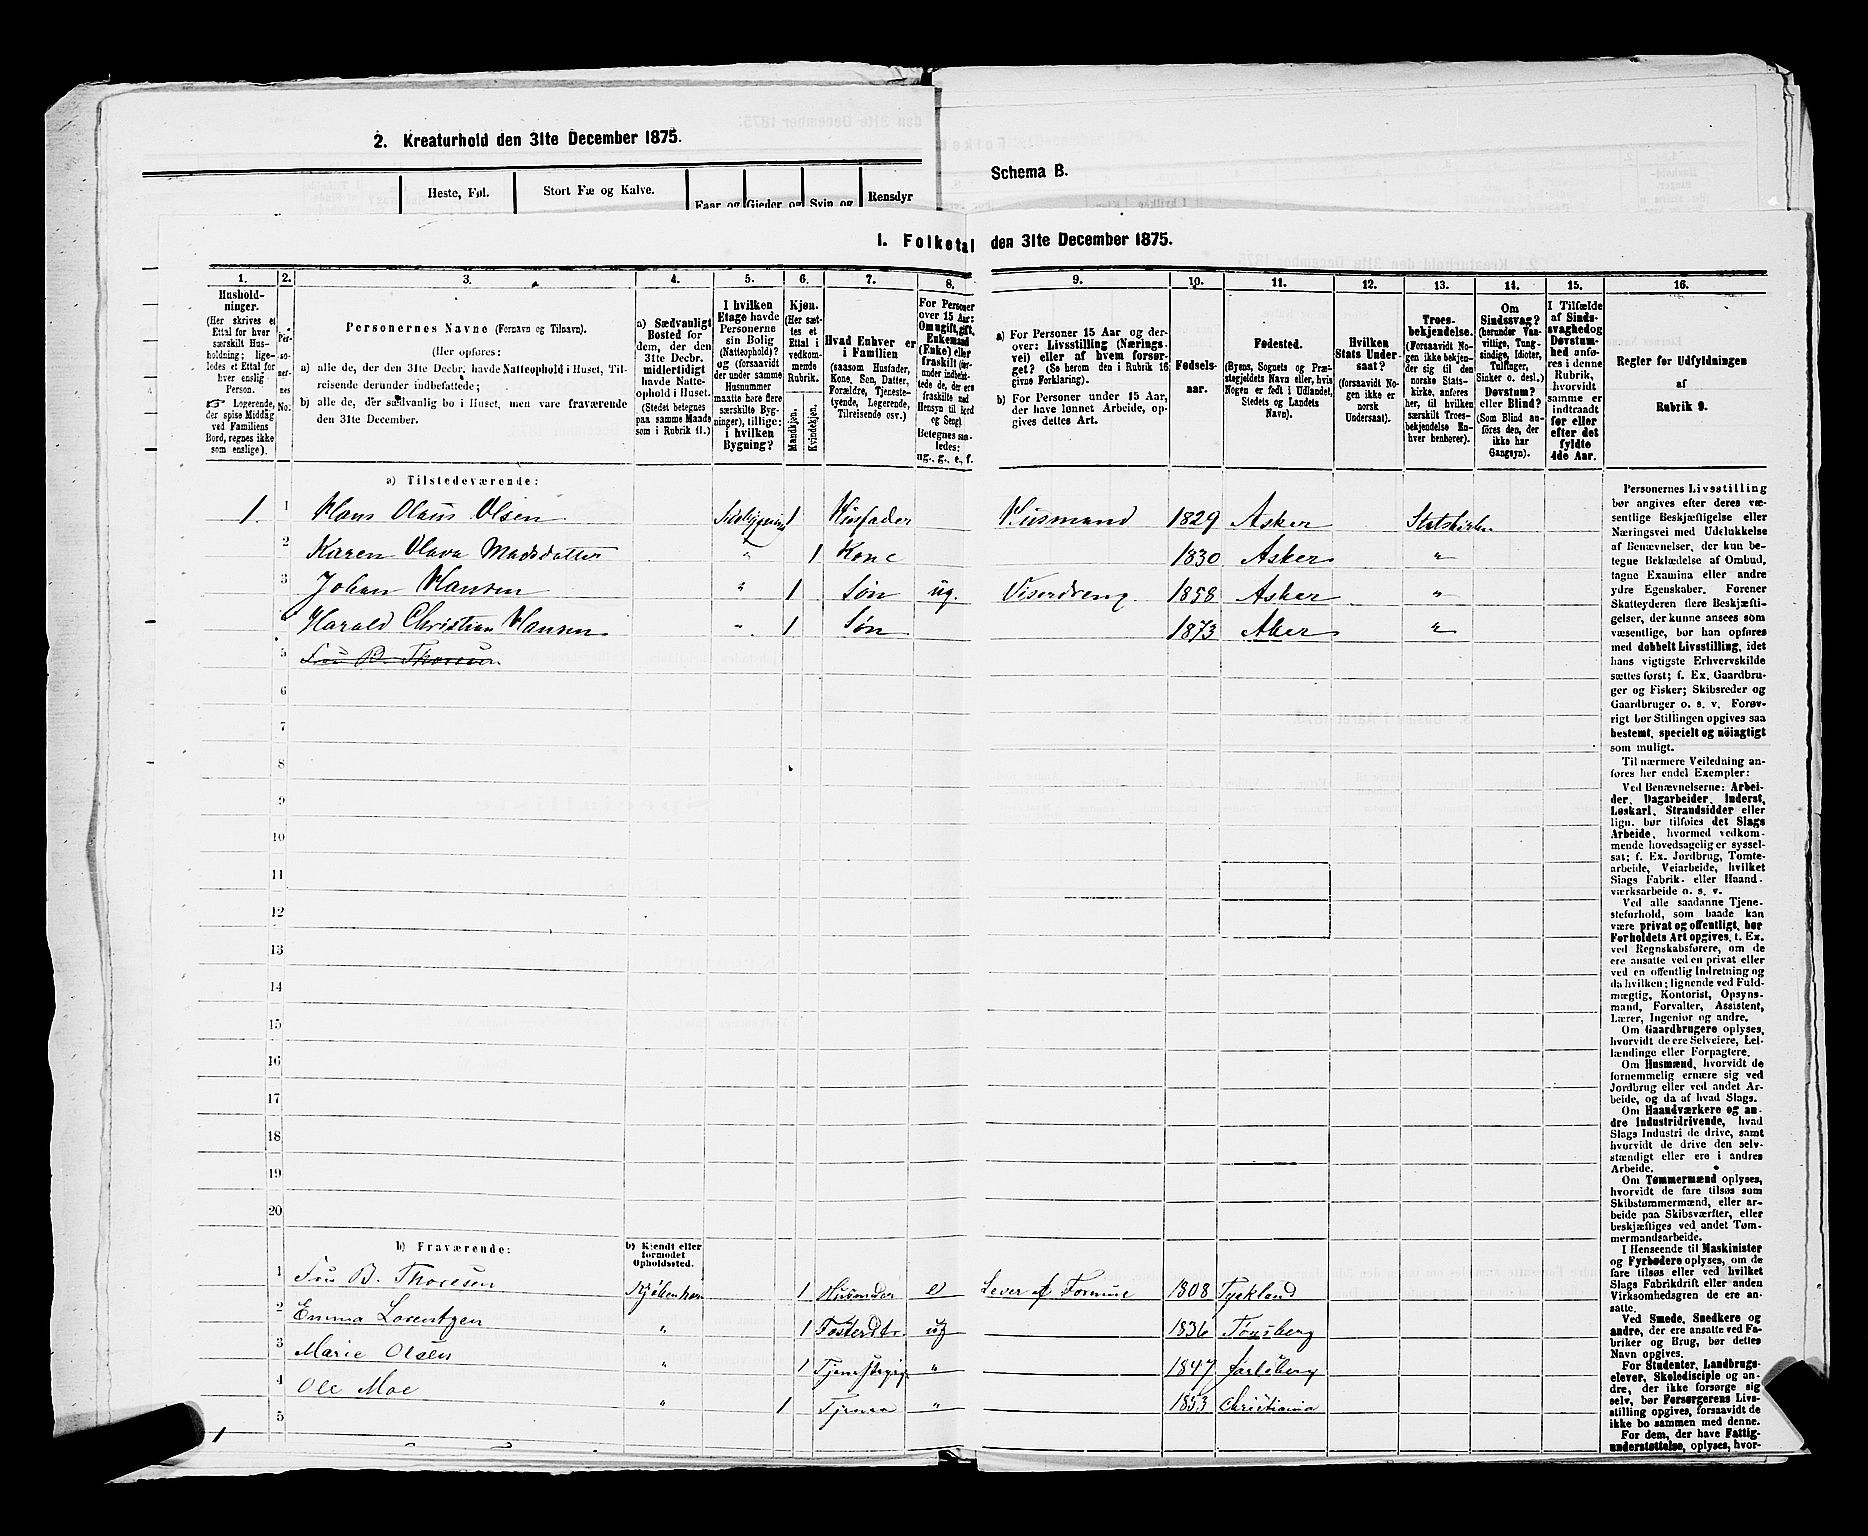 2. Kreaturhold den 31te December 1875.
Heste, Føl.
Stort Fæ og Kalve.
Faar og
Gjeder og
Svin og
Rensdyr
Schema B.
1. Folketal den 31te December 1875.
1. 2. 3. 4. 5. 6. 7. 8. 9. 10. 11. 12. 13. 14. 15. 16.
Hushold-
ninger.
(Her skrives et
Ettal for hver
særskilt Hus-
holdning; lige-
ledes et Ettal for
hver enslig
Person.
☞ Logerende,
der spise Middag
ved Familiens
Bord, regnes ikke
som enslige).
Per-
so-
ner-
nes
No.
Personernes Navne (Fornavn og Tilnavn).
(Her opføres:
a) alle de, der den 31te Decbr. havde Natteophold i Huset, Til-
reisende derunder indbefattede;
b) alle de, der sædvanlig bo i Huset, men vare fraværende
den 31te December.
a) Sædvanligt
Bosted for
dem, der den
31te Decbr.
midlertidigt
havde Natte-
ophold i Huset.
(Stedet betegnes
paa samme Maade
som i Rubrik 11.)
I hvilken
Etage havde
Personerne
sin Bolig
(Natteophold)?
og (forsaavidt
der under samme
Husnummer
maatte høre flere
særskilte Byg-
ninger), tillige:
i hvilken
Bygning?
Kjøn.
(Her sæt-
tes et
Ettal i
vedkom-
mende
Rubrik.
Mandkjøn.
Kvindekjøn.
Hvad Enhver er
i Familien
(saasom Husfader,
Kone, Søn, Datter,
Forældre, Tjeneste-
tyende, Logerende,
Tilreisende osv.)
For Personer
over 15 Aar:
Om ugift, gift,
Enkemand
(Enke) eller
fraskilt (her-
under indbefat-
tede de, der ere
fraskilte med
Hensyn til Bord
og Seng).
Betegnes saa-
ledes:
ug., g., e., f.
a) For Personer 15 Aar og der-
over: Livsstilling (Nærings-
vei) eller af hvem forsør-
get? (Se herom den i Rubrik 16
givne Forklaring).
b) For Personer under 15 Aar,
der have lønnet Arbeide, op-
gives dettes Art.
Fødsels-
aar.
Fødested.
(Byens, Sognets og Præ-
stegjeldets Navn eller, hvis
Nogen er født i Udlandet,
Stedets og Landets
Navn).
Hvilken
Stats Under-
saat?
(forsaavidt No-
gen ikke er
norsk
Undersaat).
Troes-
bekjendelse.
(Forsaavidt No-
gen ikke bekjen-
der sig til den
norske Stats-
kirke, anføres
her, til hvilken
særskilt Troes-
bekjendelse En-
hver henhører).
Om
Sindssvag?
(herunder Van-
vittige, Tung-
sindige, Idioter,
Tullinger,
Sinker o. desl.)
Døvstum?
eller Blind?
(Som Blind an-
føres den, der
ikke har
Gangsyn).
I Tilfælde
af Sinds-
svaghed og
Døvstum-
hed anfø-
res i denne
Rubrik,
hvorvidt
samme er
indtraadt
før eller
efter det
fyldte
4de Aar.
Regler for Udfyldningen
af
Rubrik 9.
a) Tilstedeværende:
1. 1 Hans Olaus Olsen 1 Husfader Husmand 1829 Asker Statskirken
2 Karen Olava Madsdatter " 1 Kone 1830 Asker "
3 Johan Hansen " 1 Søn ug. Viserdreng 1858 Asker "
4 Harald Christian Hansen " 1 Søn 1873 Aker "
5 Fru B. Thoresen
6
7
8
9
10
11
12
13
14
15
16
17
18
19
20
b) Fraværende:
b) Kjendt eller
formodet
Opholdssted.
1 Fru B. Thoresen Kjøbenhavn 1 Husmoder e Lever af Formue 1808 Tyskland
2 Emma Lorentzen " 1 Fosterdtr. ug 1836 Tønsberg
3 Marie Olsen " 1 " 1847 Jarlsberg
4 Ole Moe " 1 " 1853 Christiania
5
Personernes Livsstilling
bør angives efter deres væ-
sentlige Beskjæftigelse eller
Næringsvei med Udelukkelse
af Benævnelser, der kun be-
tegne Beklædelse af Ombud,
tagne Examina eller andre
ydre Egenskaber. Forener
Skatteyderen flere Beskjæfti-
gelser, der kunne ansees som
væsentlige, bør han opføres
med dobbelt Livsstilling, idet
hans vigtigste Erhvervskilde
sættes først; f. Ex. Gaardbru-
ger og Fisker; Skibsreder og
Gaardbruger o. s. v. Forøv-
rigt bør Stillingen opgives saa
bestemt, specielt og nöiagtigt
som muligt.
Til nærmere Veiledning an-
føres her endel Exempler:
Ved Benævnelserne: Arbei-
der, Dagarbeider, Inderst,
Løskarl, Strandsidder eller
lign. bør tilføies det Slags
Arbeide, hvormed vedkom-
mende hovedsagelig er syssel-
sat; f. Ex. Jordbrug, Tomte-
arbeide, Veiarbeide, hvilket
Slags Fabrik- eller Haand-
værksarbeide o. s. v.
Ved alle saadanne Tjene-
steforhold, som baade kan
være privat og offentligt, bør
Forholdets Art opgives, f. Ex.
ved Regnskabsførere, om de
ere ansatte ved en privat eller
ved en offentlig Indretning og
da hvilken; lignende ved Fuld-
mægtig, Kontorist, Opsyns-
mand, Forvalter, Assistent,
Lærer, Ingeniør og andre.
Om Gaardbrugere oplyses,
hvorvidt de ere Selveiere, Lei-
lændinge eller Forpagtere.
Om Husmænd, hvorvidt de
fornemmelig ernære sig ved
Jordbrug eller ved andet Ar-
beide, og da af hvad Slags.
Om Haandværkere og an-
dre Industridrivende, hvad
Slags Industri de drive, samt
hvorvidt de drive den selv-
stændigt eller ere i andres
Arbeide.
Om Tømmermænd oplyses,
hvorvidt de fare tilsøs som
Skibstømmermænd, eller ar-
beide paa Skibsværfter, eller
beskjæftiges ved andet Tøm-
mermandsarbeide.
I Henseende til Maskinister
og Fyrbødere oplyses, om de
fare tilsøs eller ved hvilket
Slags Fabrikdrift eller anden
Virksomhedsgren de ere an-
satte.
Ved Smede, Snedkere og
andre, der ere ansatte ved Fa-
briker og Brug, bør dettes
Navn opgives.
For Studenter, Landbrugs-
elever, Skoledisciple og an-
dre, der ikke forsørge sig
selv, bør Forsørgerens Livs-
stilling opgives, forsaavidt de
ikke bo sammen med denne.
For dem, der have Fattig-
understøttelse, oplyses, hvor-